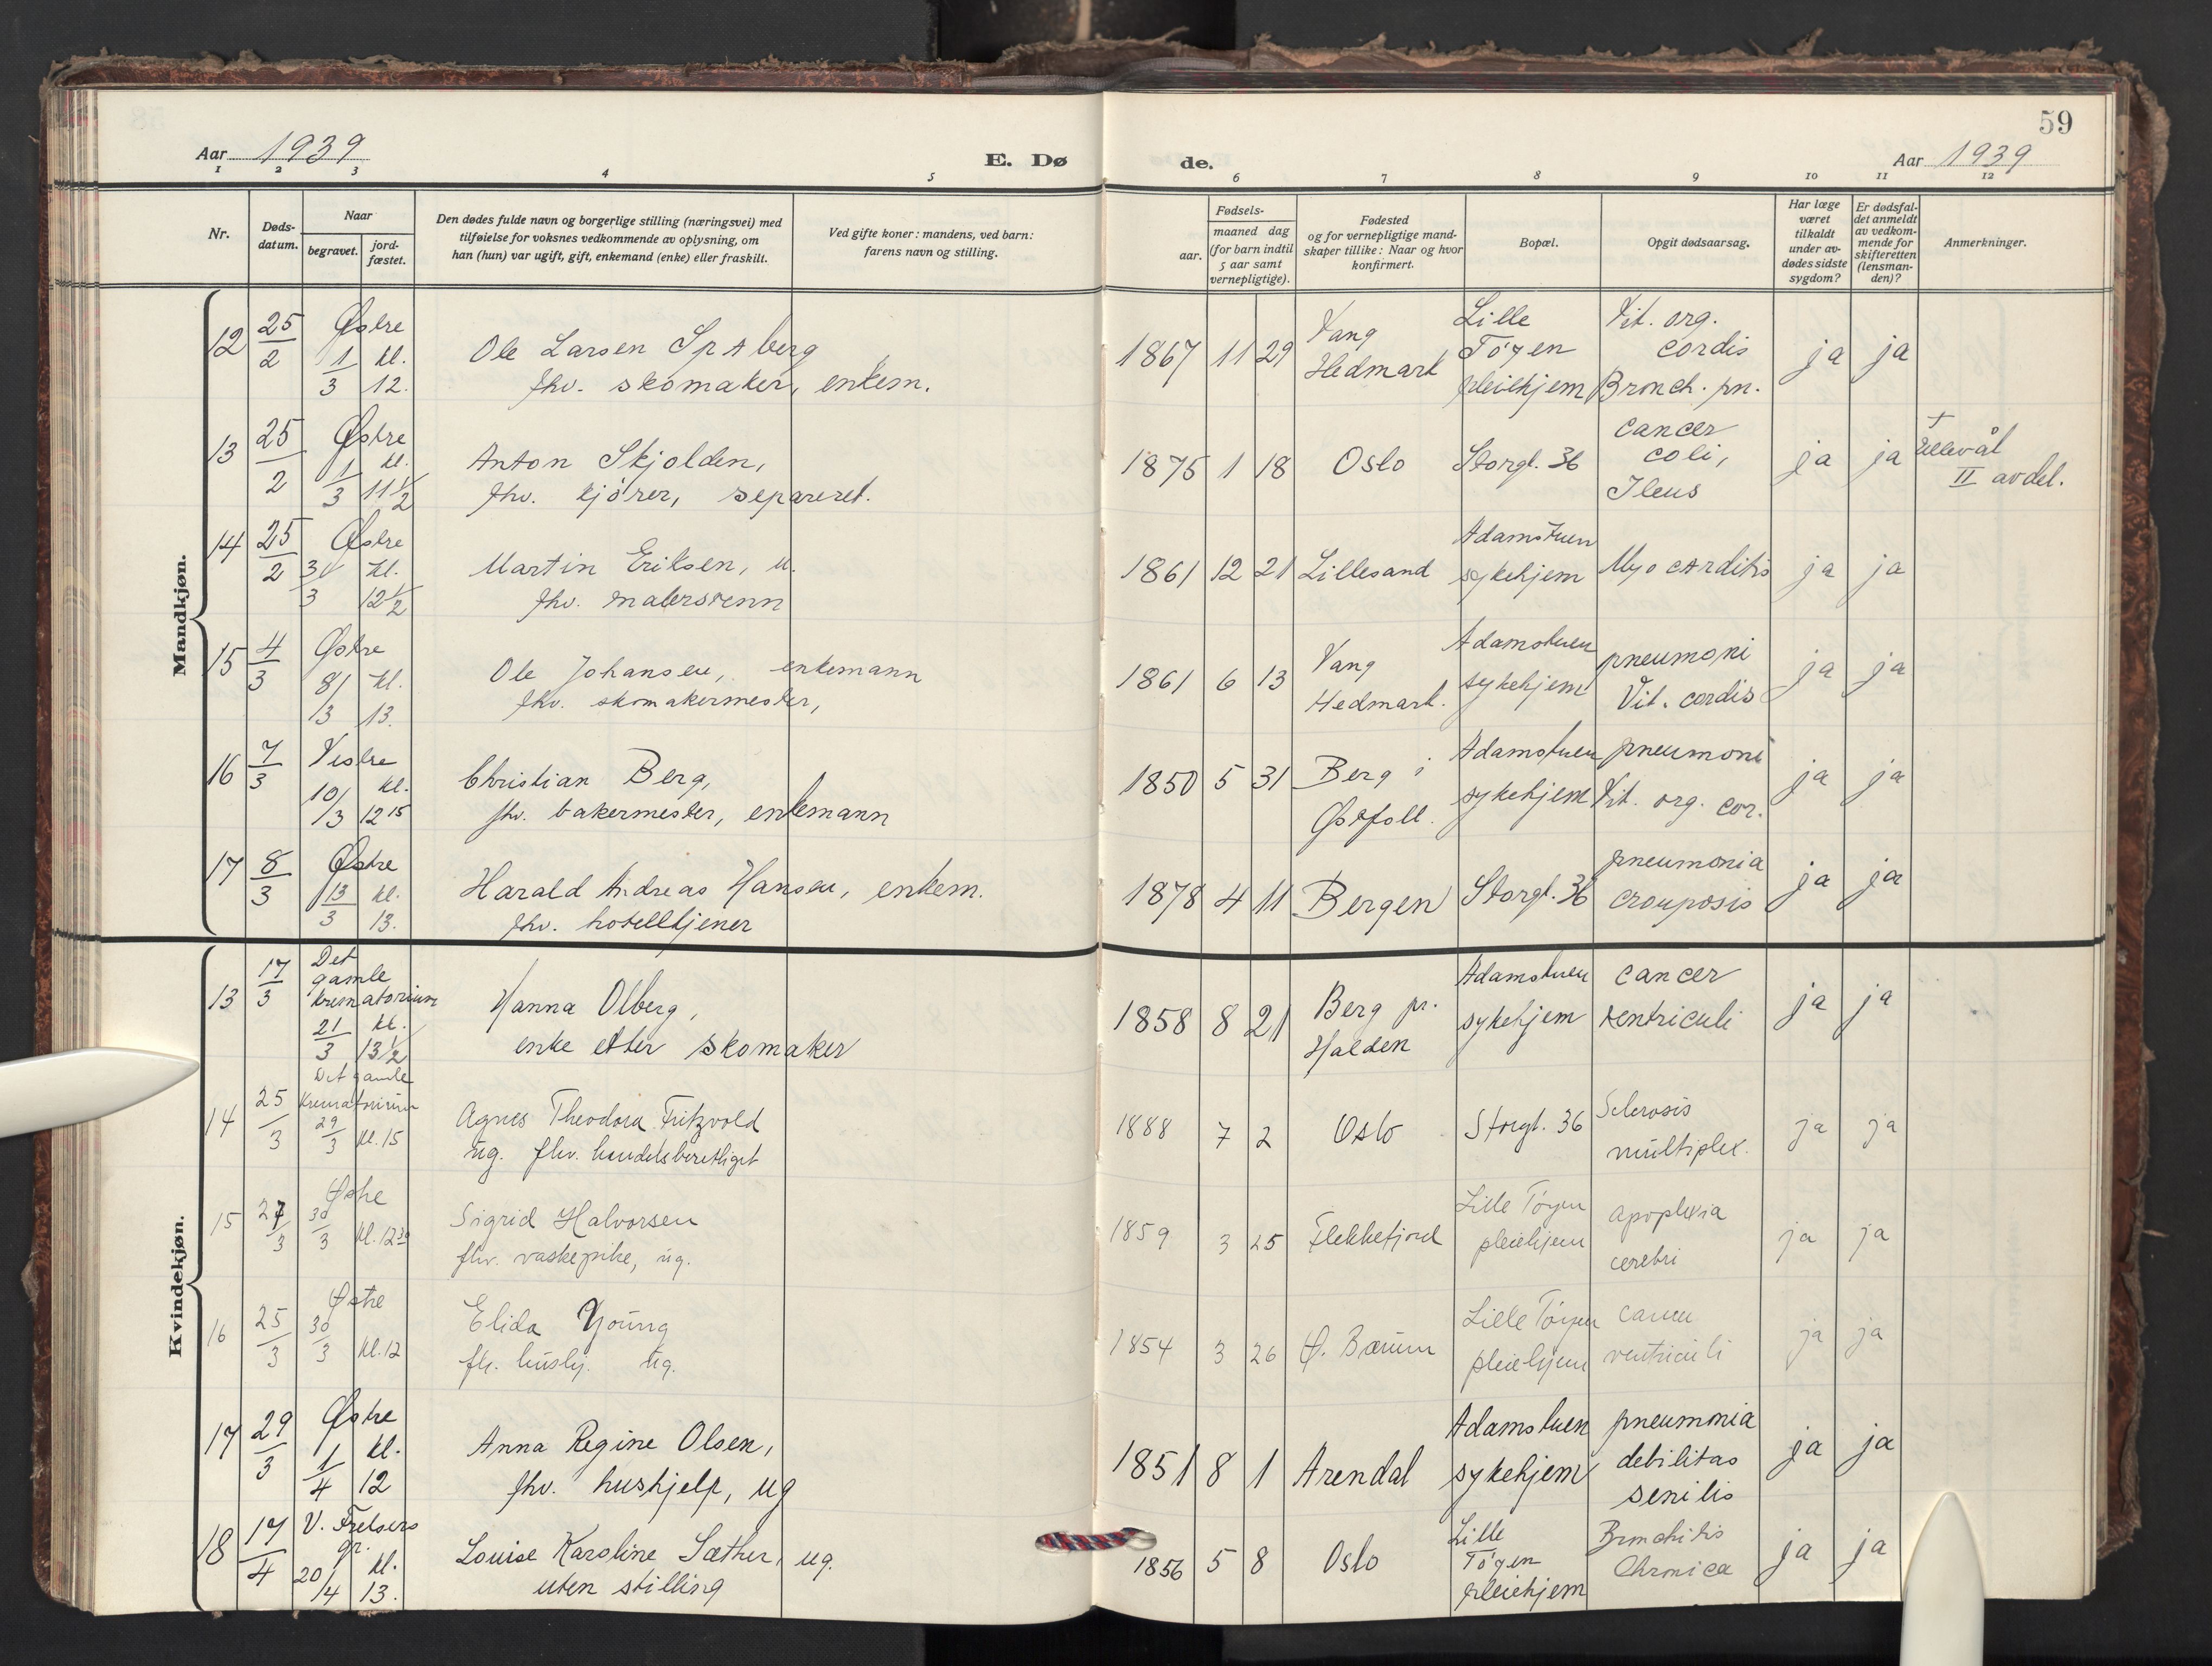 59
Aar 1939
E. Dø
de.
Aar 1939
1 2 3 4 5 6 7 8 9 10 11 12
Nr.
Døds-
datum.
Naar
begravet.
jord-
fæstet.
Den dødes fulde navn og borgerlige stilling (næringsvei) med
tilføielse for voksnes vedkommende av oplysning, om
han (hun) var ugift, gift, enkemand (enke) eller fraskilt.
Ved gifte koner: mandens, ved barn:
farens navn og stilling.
Fødsels-
aar.
maaned dag
(for barn indtil
5 aar samt
vernepligtige).
Fødested
og for vernepligtige mand-
skaper tillike: Naar og hvor
konfirmert.
Bopæl.
Opgit dødsaarsag.
Har læge
været
tilkaldt
under av-
dødes sidste
sygdom?
Er dødsfal-
det anmeldt
av vedkom-
mende for
skifteretten
(lensman-
den)?
Anmerkninger.
Mandkjøn.
12 25/2 Østre 1/3 kl. 12.
Ole Larsen Spaberg
fhv. skomaker, enkem.
1867 11 29
Vang
Hedmark
Lille
Tøyen
pleiehjem
Vit. org.
cordis
Bronch. pn.
ja ja
13 25/2 Østre 1/3 kl. 11 1/2
Anton Skjolden,
fhv. kjører, separeret.
1875 1 18
Oslo
Storgt. 36
cancer
coli,
Ileus
ja ja
+
Ullevål
II avdel.
14 25/2 Østre 3/3 kl. 12 1/2
Martin Eriksen, u.
fhv. malersvenn
1861 12 21
Lillesand
Adamstuen
sykehjem
Myocarditis
ja ja
15 4/3 Østre 8/3 kl. 13.
Ole Johansen, enkemann
fhv. skomakermester,
1861 6 13
Vang
Hedmark.
Adamstuen
sykehjem
pneumoni
Vit. cordis
ja ja
16 7/3 Vestre 10/3 kl. 12 15
Christian Berg,
fhv. bakermester, enkemann
1850 5 31
Berg i
Østfoll.
Adamstuen
sykehjem
pneumoni
Vit. org. cor.
ja ja
17 8/3 Østre 13/3 kl. 13.
Harald Andreas Hansen, enkem.
fhv. hotelltjener
1878 4 11
Bergen
Storgt. 36
pneumonia
crouposis
ja ja
Kvindekjøn.
13 17/3 Det
gamle
krematorium
21/3 kl. 13 1/2
Hanna Olberg,
enke etter skomaker
1858 8 21
Berg pr.
Halden
Adamstuen
sykehjem
cancer
ventriculi
ja ja
14 25/3 Det gamle
krematorium
29/3 kl. 15
Agnes Theodora Fritzvold
ug. fhv. handelsberettiget
1888 7 2
Oslo
Storgt. 36
Sclerosis
multiplex.
ja ja
15 27/3 Østre 30/3 kl. 12 30
Sigrid Halvorsen
fhv. vaskepike, ug.
1859 3 25
Flekkefjord
Lille Tøyen
pleiehjem
apoplexia
cerebri
ja ja
16 25/3 Østre 30/3 kl. 12
Elida Young
fh. hushj. ug.
1854 3 26
Ø. Bærum
Lille Tøyen
pleiehjem
cancer
ventriculi
ja ja
17 29/3 Østre 1/4 kl. 12
Anna Regine Olsen,
fhv. hushjelp, ug
1851 8 1
Arendal
Adamstuen
sykehjem
pneumonia
debilitas
senilis
ja ja
18 17/4 V. Frelsers
gr.
20/4 kl. 13.
Louise Karoline Sæther, ug.
uten stilling
1856 5 8
Oslo
Lille
Tøyen
pleiehjem
Bronchitis
Chronica
ja ja